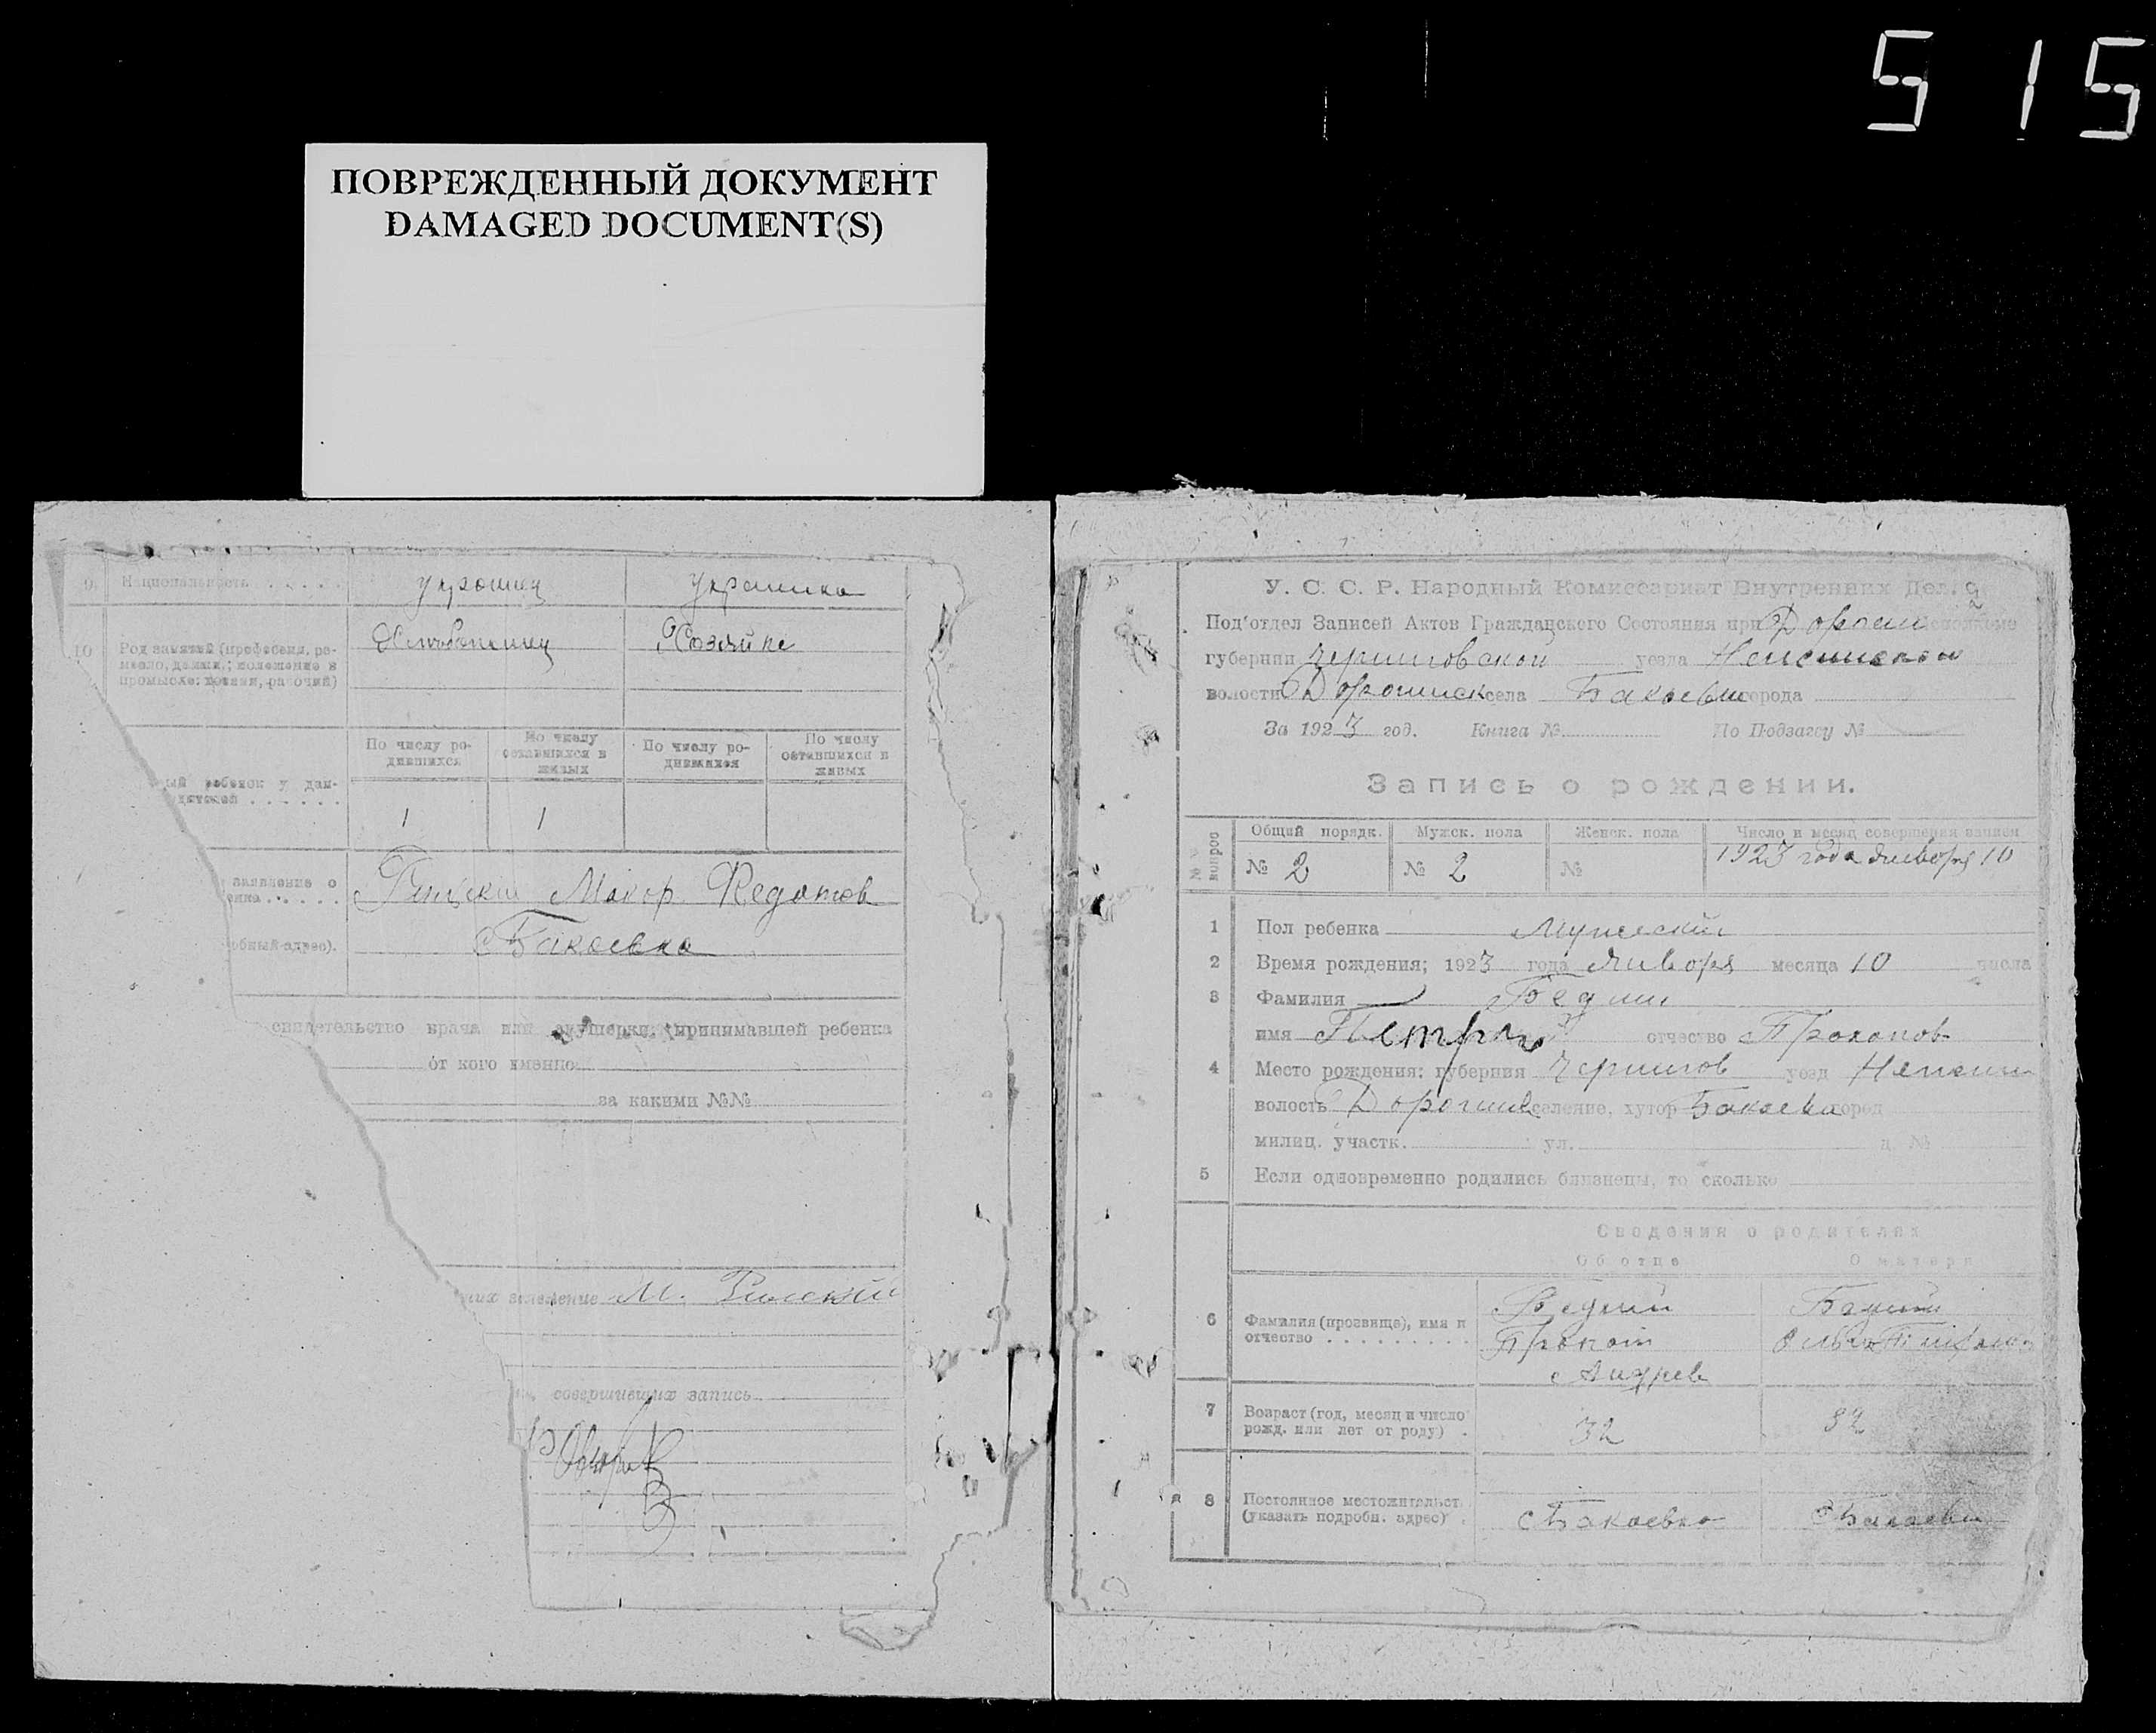 5 15
ПОВРЕЖДЕННЫЙ ДОКУМЕНТ
DAMAGED DOCUMENT(S)
9 Национальность украинец украинка
10 Род занятий (профессия, ре-
месло, должн.; положение в
промысле: хозяин, рабочий)
Хлебопашец Хозяйка
По числу ро-
дившихся
По числу
оставшихся в
живых
По числу ро-
дившихся
По числу
оставшихся в
живых
ый ребенок у дан-
1 1
заявление о
Макар Федотов
обный адрес). с Бакаевка
свидетельство врача или акушерки, принимавшей ребенка
от кого именно
за какими №№
их заявление М.
совершивших запись
У. С. С. Р. Народный Комиссариат Внутренних Дел.
Под'отдел Записей Актов Гражданского Состояния при Дорогин
губернии Черниговской уезда Неженской
волости Дорогинск села Бакаевки города
За 1923 год. Книга № По Подзагсу №
Запись о рождении.
Общий порядк. Мужск. пола Женск. пола Число и месяц совершения записи
№ 2 № 2 № 1923 года января 10
1 Пол ребенка Мужеский
2 Время рождения; 1923 года января месяца 10 числа
3 Фамилия Бедный
имя Петр отчество Прокопов
4 Место рождения: губерния Чернигов уезд Нежин
волость Дорогинс селение, хутор Бакаевка город
милиц. участк. ул. д. №
5 Если одновременно родились близнецы, то сколько
Сведения о родителях
Об отце О матери
6 Фамилия (прозвище), имя и
отчество
Бедный
Прокоп
Андрев
7 Возраст (год, месяц и число
рожд. или лет от роду)
32 32
8 Постоянное местожительст.
(указать подробн. адрес)
с Бакаевка с Бакаевка